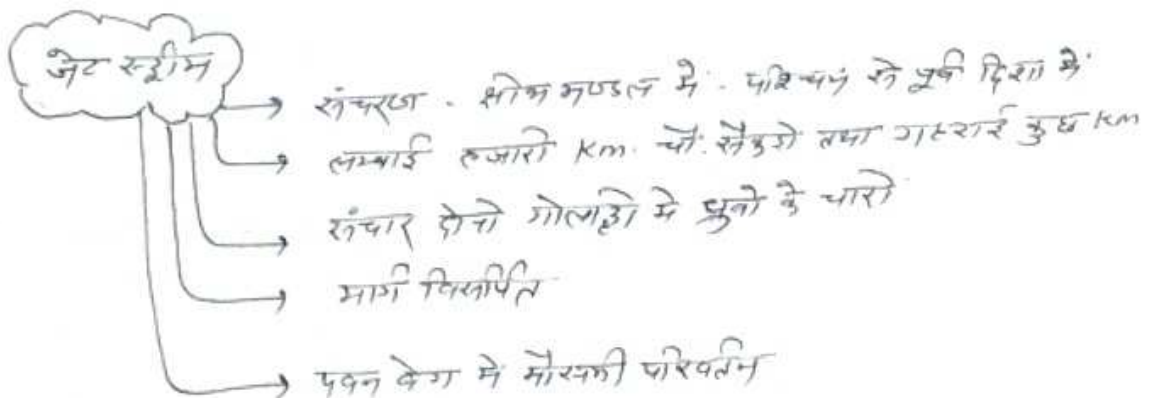 जेट स्ट्रीम
संचरण - क्षोभ मण्डल में - पश्चिम से पूर्व दिशा में
लम्बाई हजारो km. चौ. सैकड़ो तथा गहराई कुछ km
संचार दोनो गोलार्द्धो मे ध्रुवो के चारो
मार्ग विसर्पित
पवन वेग मे मौसमी परिवर्तन